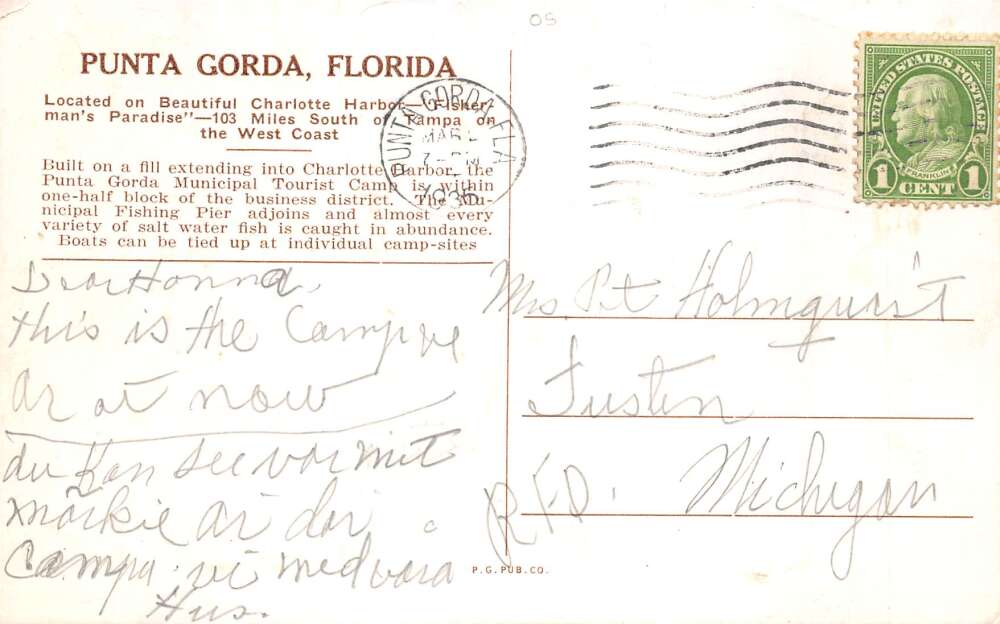 05
PUNTA GORDA, FLORIDA
Located on Beautiful Charlotte Harbor—"Fisher-
man's Paradise"—103 Miles South of Tampa on
the West Coast
Built on a fill extending into Charlotte Harbor, the
Punta Gorda Municipal Tourist Camp is within
one-half block of the business district. The Mu-
nicipal Fishing Pier adjoins and almost every
variety of salt water fish is caught in abundance.
Boats can be tied up at individual camp-sites
PUNTA GORDA, FLA
MAR
1936
UNITED STATES POSTAGE
FRANKLIN
1 CENT 1
Dear Honna,
this is the Camp ve
ar at now
du kan see var mit
markie ar dar
Campa vi med vara
Hus.
Mrs Pit Holmquist
Tustin
Michigan
R.F.D.
P.G. PUB. CO.